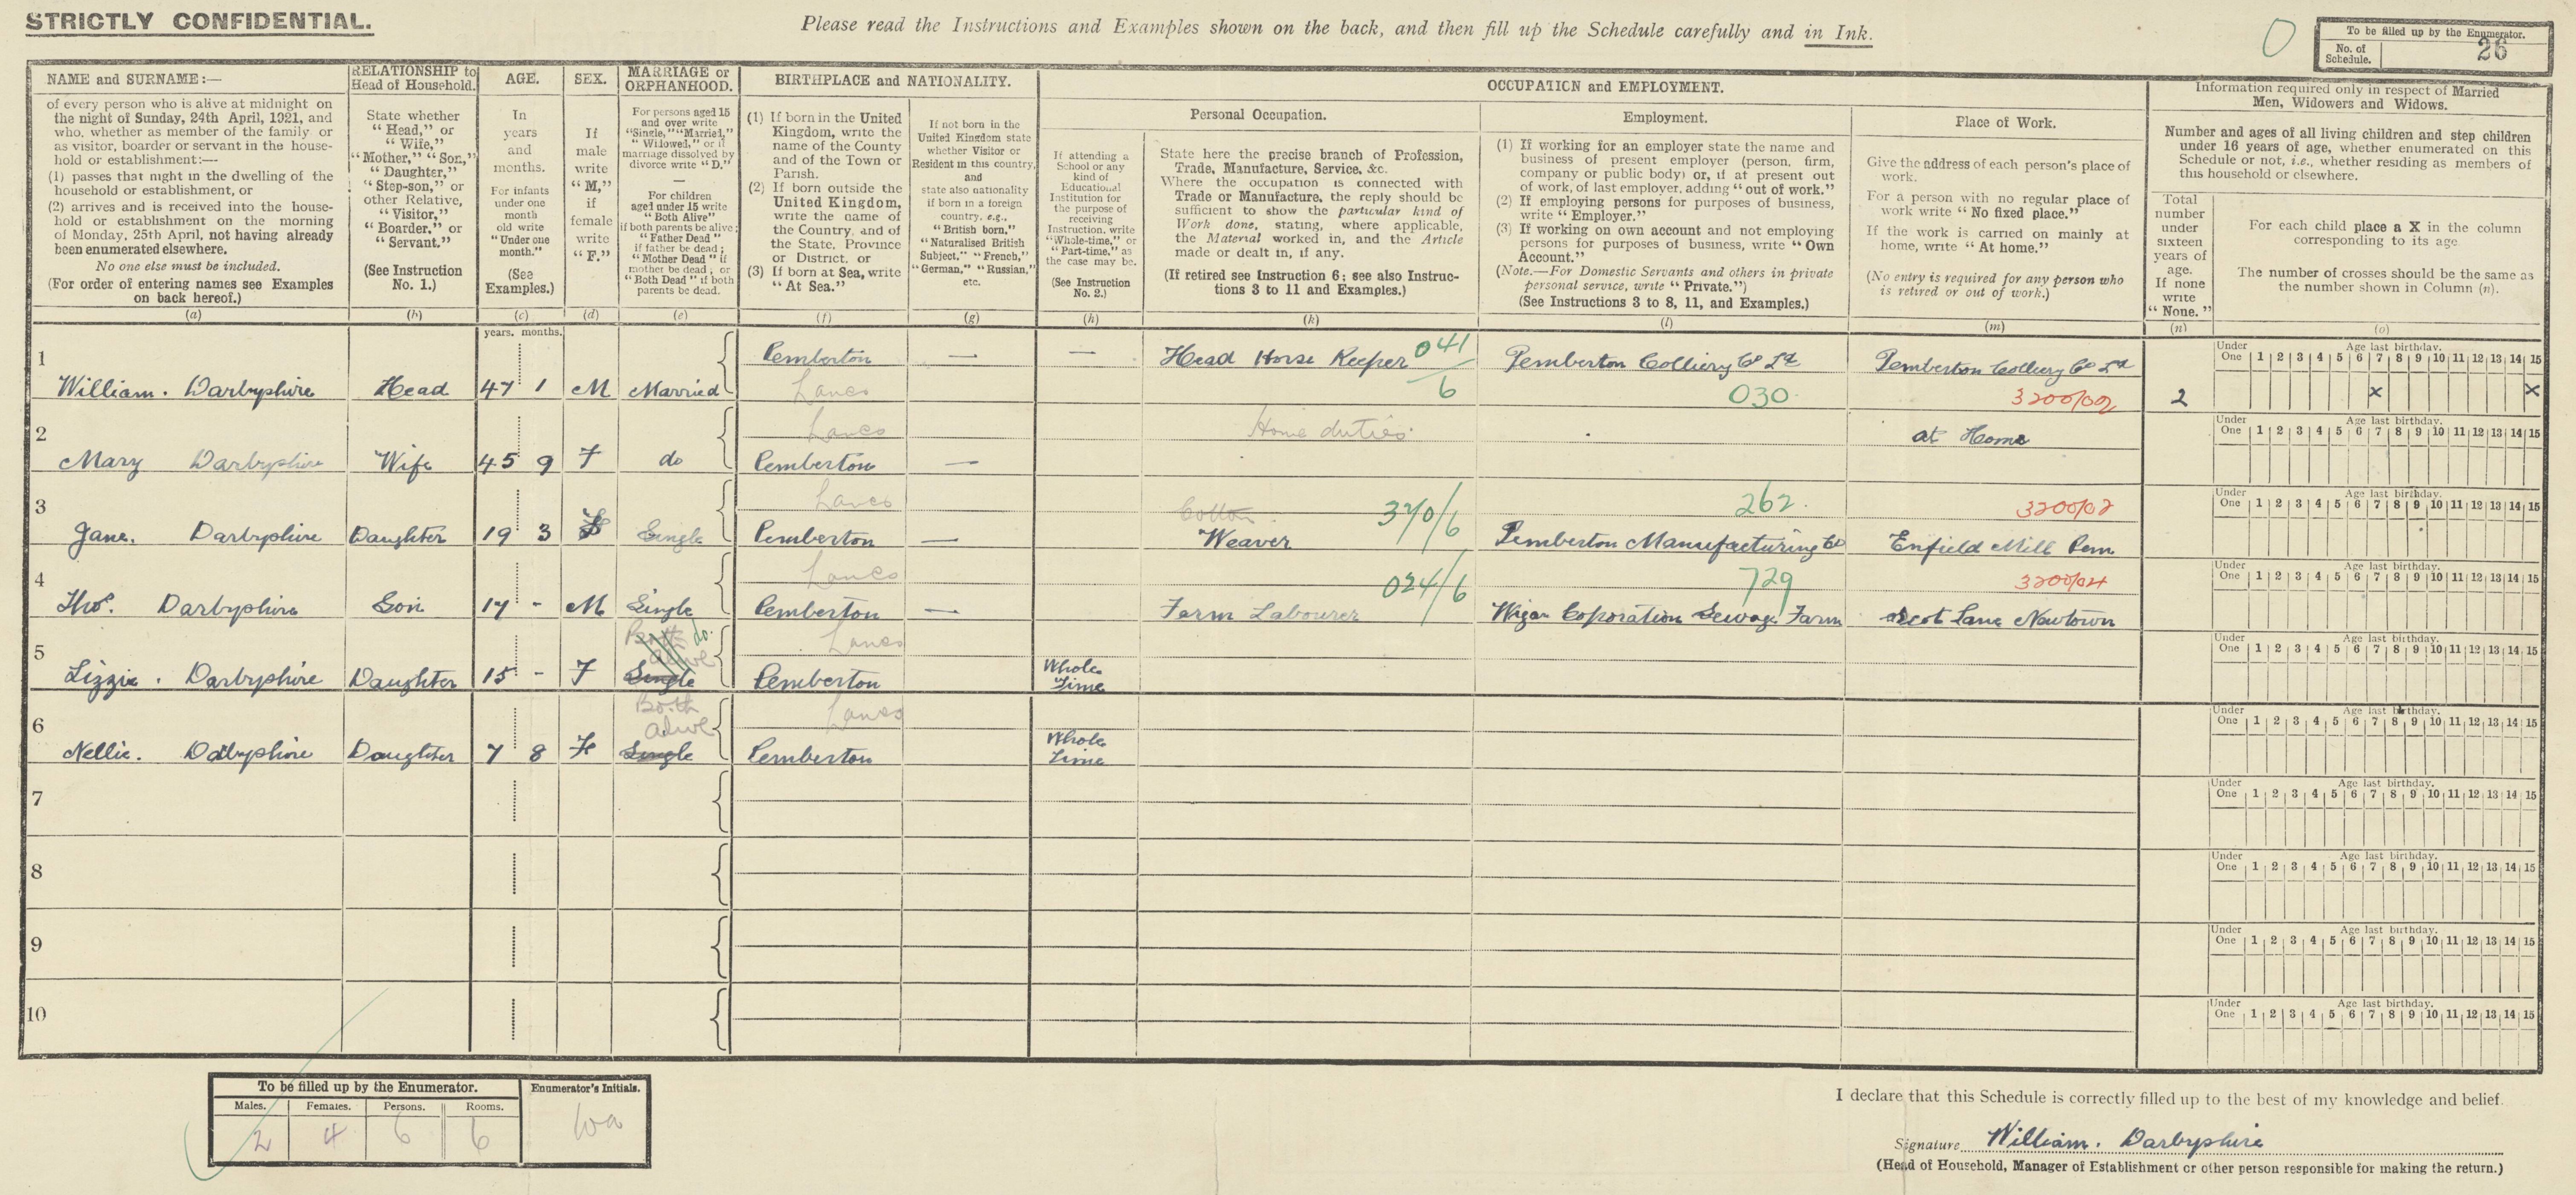 STRICTLY CONFIDENTIAL.
Please read the Instructions and Examples shown on the back, and then fill up the Schedule carefully and in Ink.
0
To be filled up by the Enumerator.
No. of Schedule. 26
NAME and SURNAME:—
of every person who is alive at midnight on
the night of Sunday, 24th April, 1921, and
who, whether as member of the family or
as visitor, boarder or servant in the house-
hold or establishment:—
(1) passes that night in the dwelling of the
household or establishment, or
(2) arrives and is received into the house-
hold or establishment on the morning
of Monday, 25th April, not having already
been enumerated elsewhere.
No one else must be included.
(For order of entering names see Examples
on back hereof.)
(a)
RELATIONSHIP to
Head of Household.
State whether
"Head," or
"Wife,"
"Mother," "Son,"
"Daughter,"
"Step-son," or
other Relative,
"Visitor,"
"Boarder," or
"Servant."
(See Instruction
No. 1.)
(b)
AGE.
In
years
and
months.
For infants
under one
month
old write
"Under one
month."
(See
Examples.)
(c)
SEX.
If
male
write
"M,"
if
female
write
"F."
(d)
MARRIAGE or
ORPHANHOOD.
For persons aged 15
and over write
"Single," "Married,"
"Widowed," or if
marriage dissolved by
divorce write "D."
—
For children
aged under 15 write
"Both Alive"
if both parents be alive;
"Father Dead"
if father be dead;
"Mother Dead" if
mother be dead; or
"Both Dead" if both
parents be dead.
(e)
BIRTHPLACE and NATIONALITY.
(1) If born in the United
Kingdom, write the
name of the County
and of the Town or
Parish.
(2) If born outside the
United Kingdom,
write the name of
the Country, and of
the State, Province
or District, or
(3) If born at Sea, write
"At Sea."
(f)
If not born in the
United Kingdom state
whether Visitor or
Resident in this country,
and
state also nationality
if born in a foreign
country, e.g.,
"British born,"
"Naturalised British
Subject," "French,"
"German," "Russian,"
etc.
(g)
OCCUPATION and EMPLOYMENT.
Personal Occupation.
If attending a
School or any
kind of
Educational
Institution for
the purpose of
receiving
Instruction, write
"Whole-time," or
"Part-time," as
the case may be.
(See Instruction
No. 2.)
(h)
State here the precise branch of Profession,
Trade, Manufacture, Service, &c.
Where the occupation is connected with
Trade or Manufacture, the reply should be
sufficient to show the particular kind of
Work done, stating, where applicable,
the Material worked in, and the Article
made or dealt in, if any.
(If retired see Instruction 6; see also Instruc-
tions 3 to 11 and Examples.)
(k)
Employment.
(1) If working for an employer state the name and
business of present employer (person, firm,
company or public body) or, if at present out
of work, of last employer, adding "out of work."
(2) If employing persons for purposes of business,
write "Employer."
(3) If working on own account and not employing
persons for purposes of business, write "Own
Account."
(Note.—For Domestic Servants and others in private
personal service, write "Private.")
(See Instructions 3 to 8, 11, and Examples.)
(l)
Place of Work.
Give the address of each person's place of
work.
For a person with no regular place of
work write "No fixed place."
If the work is carried on mainly at
home, write "At home."
(No entry is required for any person who
is retired or out of work.)
(m)
Information required only in respect of Married
Men, Widowers and Widows.
Number and ages of all living children and step children
under 16 years of age, whether enumerated on this
Schedule or not, i.e., whether residing as members of
this household or elsewhere.
Total
number
under
sixteen
years of
age.
If none
write
"None."
(n)
For each child place a X in the column
corresponding to its age.
The number of crosses should be the same as
the number shown in Column (n).
(o)
years. months.
1
Pemberton — — Head Horse Keeper 041/6 Pemberton Colliery Co Ld Pemberton Colliery Co Ld
William. Darbyshire Head 47 1 M Married Lancs 030 3200/02 2 x x
Under One 1 2 3 4 5 6 7 8 9 10 11 12 13 14 15
Age last birthday.
2
Lancs Home duties at Home
Mary Darbyshire Wife 45 9 F do Pemberton —
Under One 1 2 3 4 5 6 7 8 9 10 11 12 13 14 15
Age last birthday.
3
Lancs Cotton 370/6 262 3200/02
Jane. Darbyshire Daughter 19 3 F Single Pemberton — Weaver Pemberton Manufacturing Co Enfield Mill Pem
Under One 1 2 3 4 5 6 7 8 9 10 11 12 13 14 15
Age last birthday.
4
Lancs 024/6 729 3200/04
Thos. Darbyshire Son 17 - M Single Pemberton — Farm Labourer Wigan Coporation Sewage Farm Scot Lane Newtown
Under One 1 2 3 4 5 6 7 8 9 10 11 12 13 14 15
Age last birthday.
5
Both alive do. Lancs
Lizzie. Darbyshire Daughter 15 - F Single Pemberton Whole Time
Under One 1 2 3 4 5 6 7 8 9 10 11 12 13 14 15
Age last birthday.
6
Both alive Lancs
Nellie. Darbyshire Daughter 7 8 F Single Pemberton Whole Time
Under One 1 2 3 4 5 6 7 8 9 10 11 12 13 14 15
Age last birthday.
7
Under One 1 2 3 4 5 6 7 8 9 10 11 12 13 14 15
Age last birthday.
8
Under One 1 2 3 4 5 6 7 8 9 10 11 12 13 14 15
Age last birthday.
9
Under One 1 2 3 4 5 6 7 8 9 10 11 12 13 14 15
Age last birthday.
10
Under One 1 2 3 4 5 6 7 8 9 10 11 12 13 14 15
Age last birthday.
To be filled up by the Enumerator.
Enumerator's Initials.
Males. Females. Persons. Rooms.
2 4 6 6
I declare that this Schedule is correctly filled up to the best of my knowledge and belief.
Signature William. Darbyshire
(Head of Household, Manager of Establishment or other person responsible for making the return.)